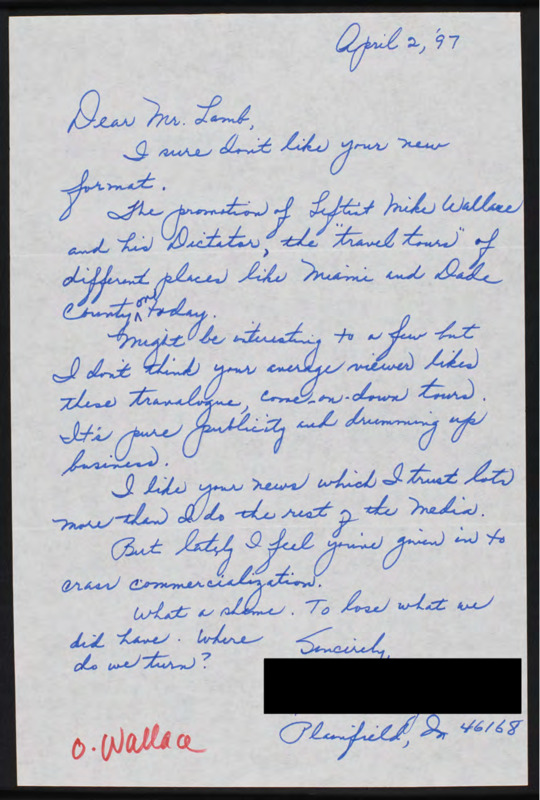 April 2, '97
Dear Mr. Lamb,
I sure don't like your new
format.
The promotion of Leftist Mike Wallace
and his Dictator, the "travel tours" of
different places like Miami and Dade
County on today.
Might be interesting to a few but
I don't think your average viewer likes
these travalogue, come-on-down tours.
It's pure publicity and drumming up
business.
I like your news which I trust lots
more than I do the rest of the media.
But lately I feel you've given in to
crass commercialization.
What a shame. To lose what we
did have. Where
do we turn?
Sincerely,
Plainfield, In 46168
O. Wallace